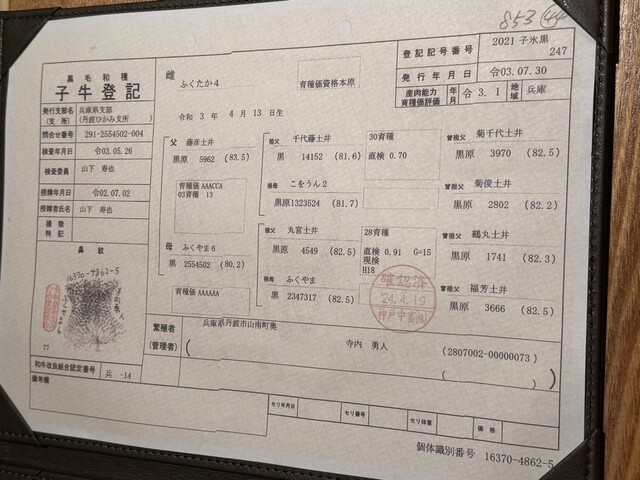 853 ㊹
黒毛和種
子牛登記
雌
ふくたか4
育種価資格本原
登記記号番号
2021 子氷黒
247
発行年月日
令03.07.30
産肉能力
育種価評価
年
月
令 3. 1
地
域
兵庫
令和 3年 4月 13日生
発行支部名
(支所)
兵庫県支部
(丹波ひかみ支所 )
問合せ番号
291-2554502-004
検査年月日
令03.05.26
検査委員
山下 寿也
授精年月日
令02.07.02
授精者氏名
山下 寿也
損徴
特記
鼻紋
父
藤彦土井
黒原 5962 (83.5)
育種価 AAACCA
03育種 13
母
ふくやま6
黒 2554502 (80.2)
育種価 AAAAAA
祖父
千代藤土井
黒 14152 (81.6)
30育種
直検 0.70
祖母
こをうん2
黒原1323524 (81.7)
祖父
丸宮土井
黒原 4549 (82.5)
28育種
直検 0.91 G=15
現検
H18
祖母
ふくやま
黒 2347317 (82.5)
曽祖父
菊千代土井
黒原 3970 (82.5)
曽祖父
菊俊土井
黒原 2802 (82.2)
曽祖父
鶴丸土井
黒原 1741 (82.3)
曽祖父
福芳土井
黒原 3666 (82.5)
確認済
'24.4.19
神戸中畜(株)
16370-4862-5
77
繁殖者
(管理者)
兵庫県丹波市山南町奥
寺内 勇人
(2807002-00000073 )
( )
和牛改良組合認定番号
兵 -14
備考欄
セリ年月日
セリ番号
セリ体重
価格
個体識別番号 16370-4862-5